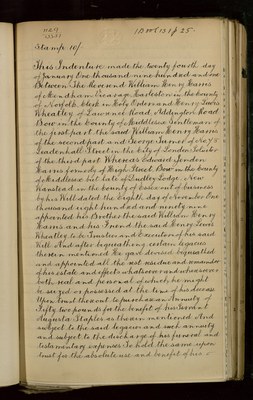 Stamp 10/-
This Indenture made the twenty fourth day
of January One thousand nine hundred and one
Between The Reverend William Henry Harris
of Mendham Vicarage Harleston in the County
of Norfolk Clerk in Holy Orders and Henry Lewis
Wheatley of Road Addington Road
Bow in the County of Middlesex Gentleman of
the first part the said William Henry Harris
of the second part and George Turner of No
Leadenhall Street in the City of London Solicitor
of the third part Whereas Edward London
Harris formerly of High Street Bow in the County
of Middlesex but late of Lodge New
Wanstead in the County of Essex out of business
by his Will dated the Eighth day of November One
thousand eight hundred and ninety nine
appointed his Brother the said William Henry
Harris and his Friend the said Henry Lewis
Wheatley to be Trustees and Executors of his said
Will And after bequeathing certain legacies
therein mentioned He gave devised bequeathed
and appointed all the rest residue and remainder
of his estate and effects whatsoever and wheresoever
both real and personal of which he might
be seized or possessed at the time of his decease
Upon trust thereout to purchase an Annuity of
Fifty two pounds for the benefit of his servant
Augusta Staples as therein mentioned And
subject to the said legacies and such annuity
and subject to the discharge of his funeral and
testamentary expenses To hold the same upon
trust for the absolute use and benefit of his